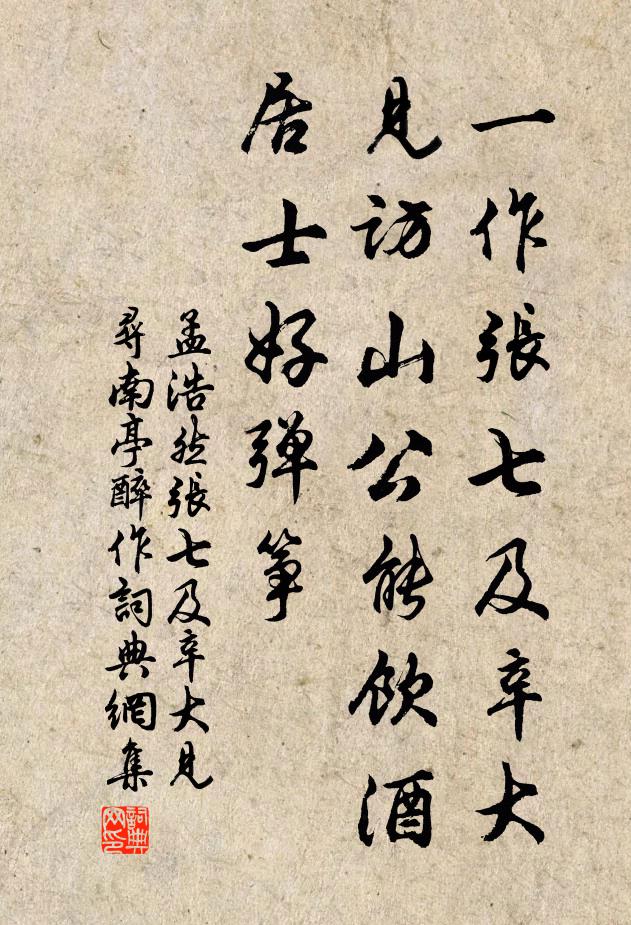 一作張七及辛大
見訪山公能飲酒
居士好弹筝
孟浩然張七及辛大見
尋南亭醉作詞典網集
詞典
网印